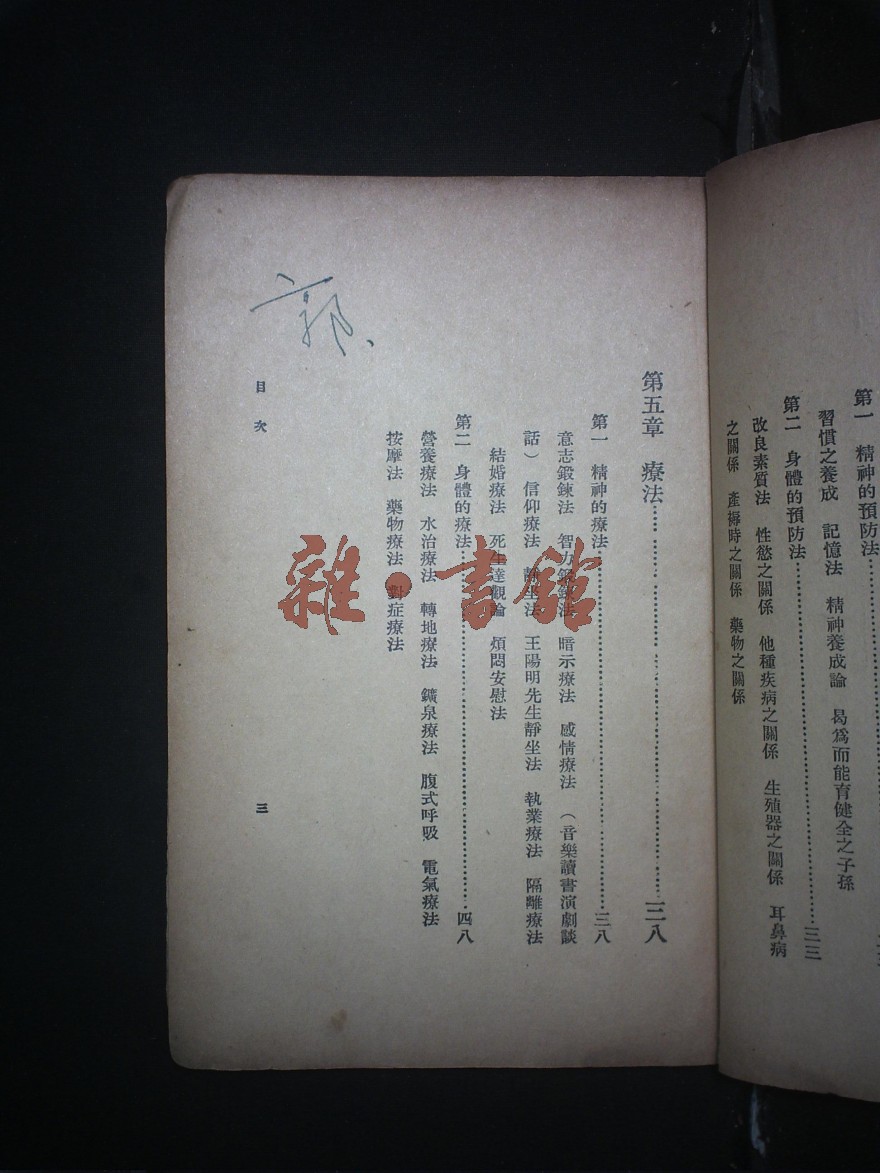 第一　精神的預防法
習慣之養成　記憶法　精神養成論　曷爲而能育健全之子孫
第二　身體的預防法……三三
改良素質法　性慾之關係　他種疾病之關係　生殖器之關係　耳鼻病
之關係　產褥時之關係　藥物之關係
第五章　療法……三八
第一　精神的療法……三八
意志鍛鍊法　智力鍛鍊法　暗示療法　感情療法　（音樂讀書演劇談
話）　信仰療法　靜坐法　王陽明先生靜坐法　執業療法　隔離療法
結婚療法　死生達觀論　煩悶安慰法
第二　身體的療法……四八
營養療法　水治療法　轉地療法　鑛泉療法　腹式呼吸　電氣療法
按摩法　藥物療法　對症療法
目次
三
郭
雜·書館